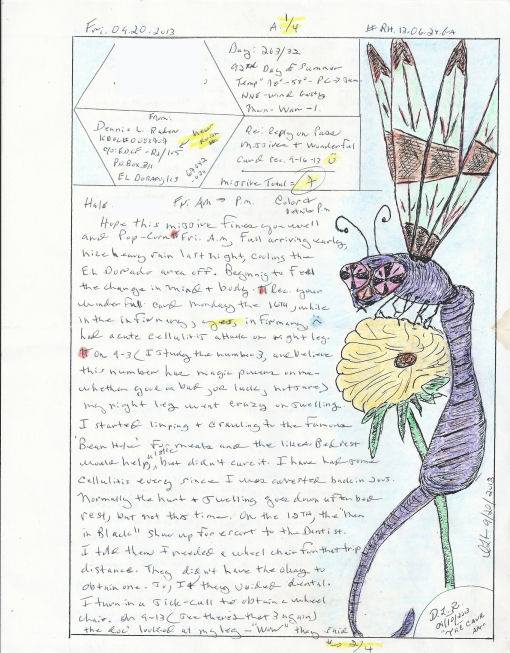 Fri. 09.20.2013
A 1/4
Day: 263/
Day of Summer
Temp
NNE - Wind Gusty
From:
Dennis L. Rader
P.O. Box 311
EL DORADO, KS
67042
New Room
Re: Reply on Pass
missives + Wonderful
Card rec. 9-16-13
Missive Total = A
Fri. AM → P.M.
Hope this missive finds you well
and Pop-Corn Fri. A.M. Fall arriving early,
nice heavy rain last night, cooling the
EL Dorado area off. Beginning to feel
the change in mind + body. Rec your
wonderfull card Monday the 16TH, while
in the infirmary, yes, infirmary,
had acute cellulitis attack on right leg
on 9-3 (I study the number 3, and believe
this number has magic powers on me
whether good or bad luck, not sure)
my right leg went crazy on swelling.
I started limping + crawling to the famous
"Bean Hole" for meals and the liked Bed rest
would help, but didn't cure it. I have had some
cellulitis every since I was arrested back in 2005.
Normally the hurt + swelling goes down after bed
rest, but not this time. On the 12TH, the "Men
in Black" show up for escort to the Dentist.
I told them I needed a wheel chair for that trip
distance. They didn't have the okay to
obtain one. So, I + they voided dental.
I turn in a sick-call to obtain a wheel
chair. On 9-13 (see there that 3 again)
the doc looked at my leg - "Wow" they said
to 2/4
D.L.R.
"THE CAUR